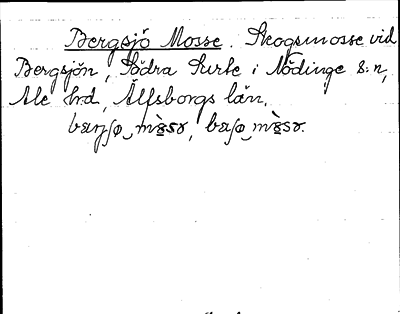 Bergsjö Mosse. Skogsmosse vid
Bergsjön, Södra Surte i Nödinge s:n,
Ale h:d, Älfsborgs län.
bæŋʃø‿mòsɤ, bæʃø‿mòsɤ.